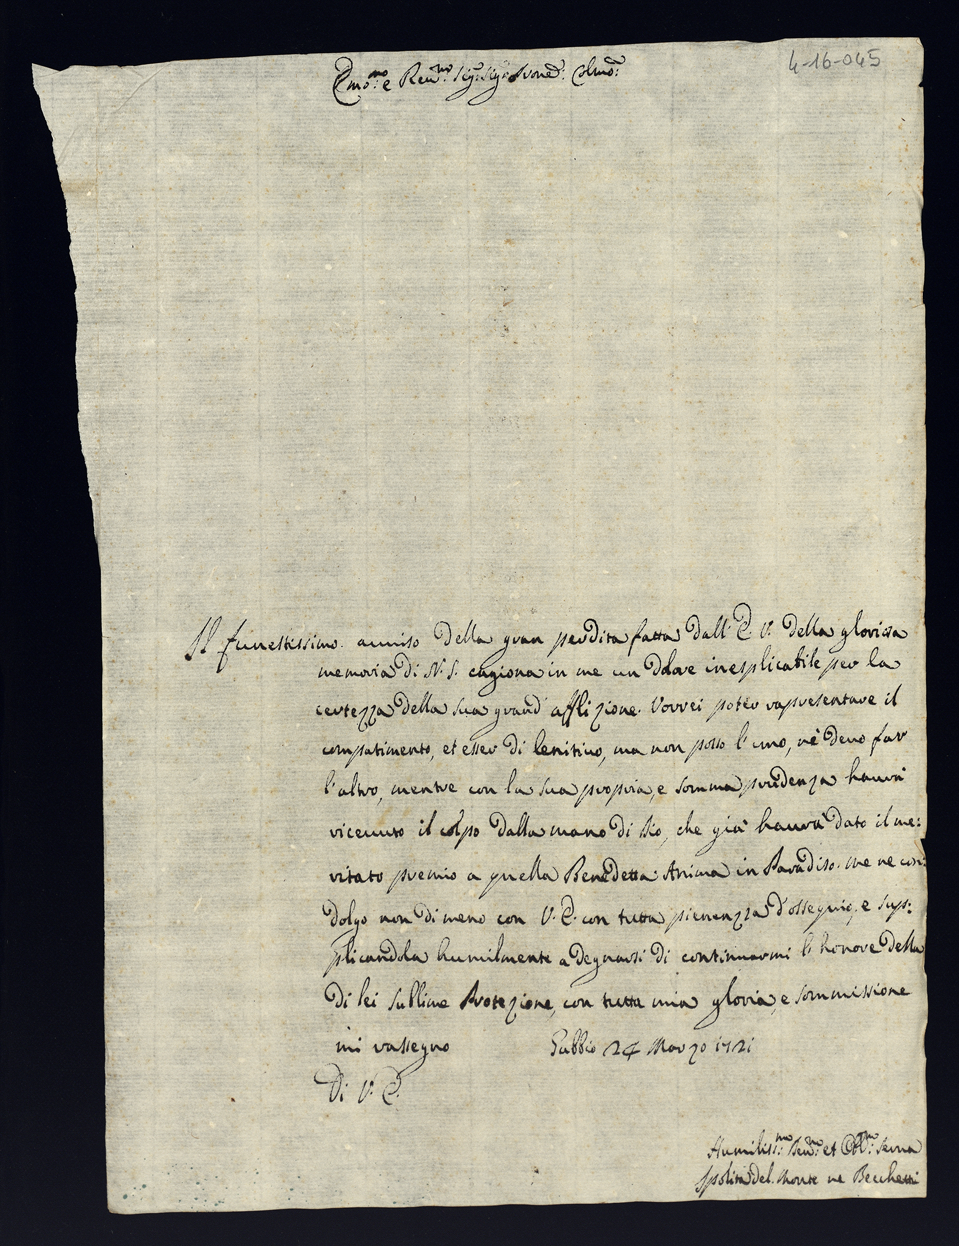 4-16-045
Emo: e Reu:mo Sig: Sig: Prone: Colmo:
Il funestissimo auuiso della gran perdita fatta dall' E. V. della gloriosa
memoria di N. S. cagiona in me un dolore inesplicabile per la
certezza della sua grand' afflizione. Vorrei poter rapresentare il
compatimento, et esser di lenitiuo, ma non posso l'uno, nè deuo far
l'altro, mentre con la sua propria, e somma prudenza haurà
riceuuto il colpo dalla mano di Dio, che già haurà dato il me:
ritato premio a quella Benedetta Anima in Paradiso. me ne con:
dolgo non di meno con V. E. con tutta pienezza d'ossequio, e sup:
plicandola humilmente a degnarsi di continuarmi l'honore della
di lei sublime Protezione, con tutta mia gloria, e sommissione
mi rassegno Gubbio 24 Marzo 1721
Di V. E.
Humiliss:mo Deu:mo et Obl:mo Serua
Ipolita del Monte ne Becchetti